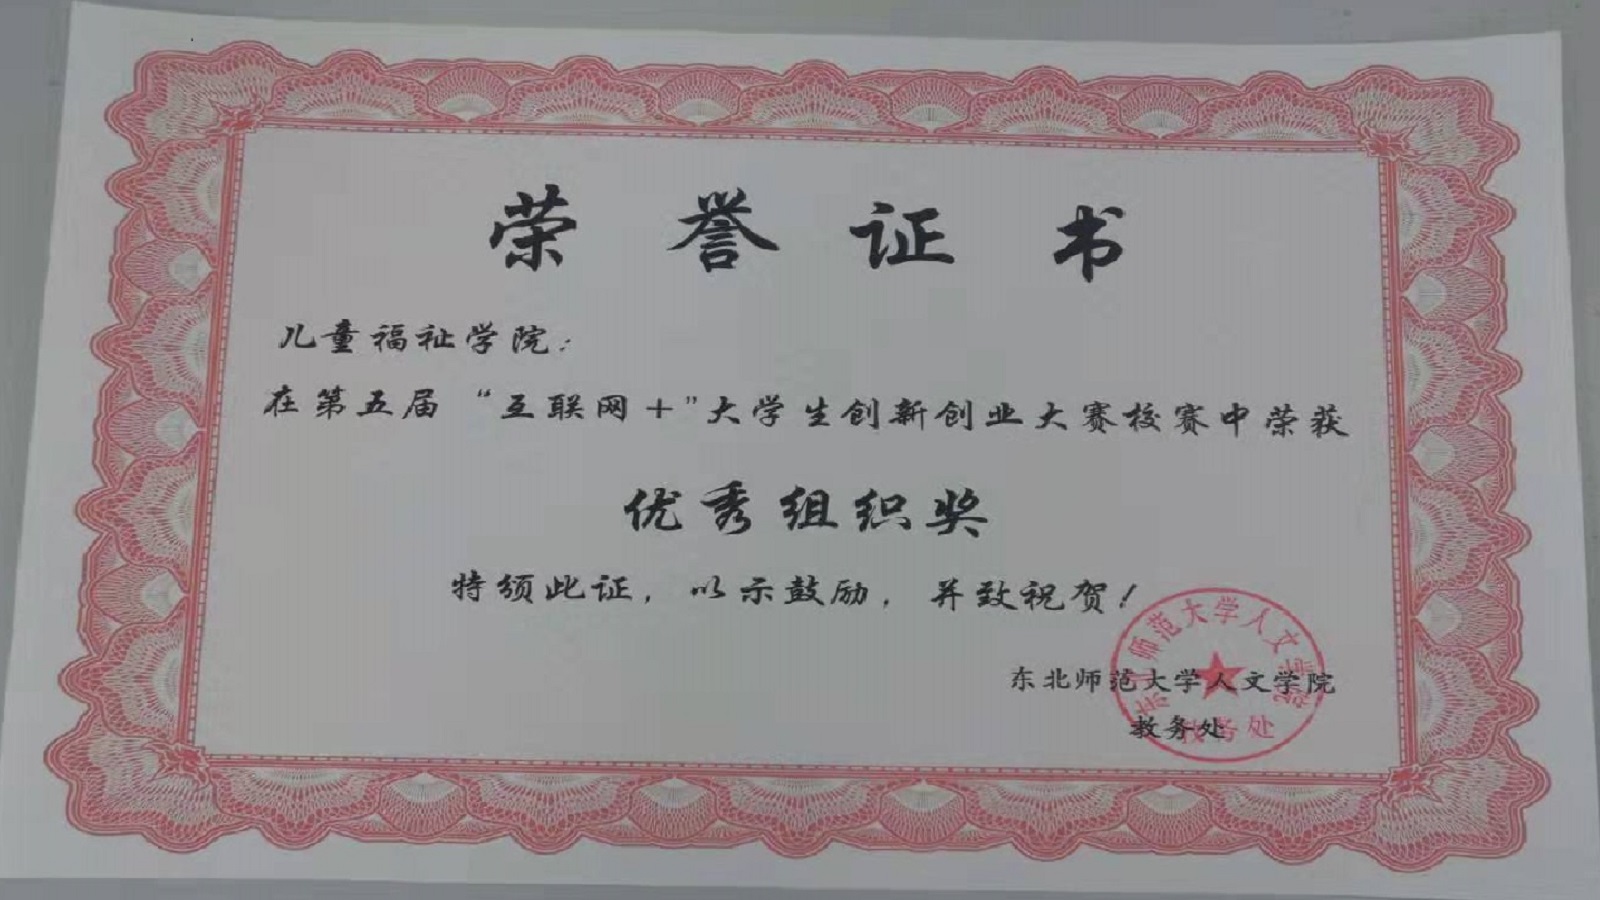 荣誉证书
儿童福祉学院：
在第五届“互联网+”大学生创新创业大赛校赛中荣获
优秀组织奖
特颁此证，以示鼓励，并致祝贺！
东北师范大学人文学院
教务处
师范大学人文学院
教务处